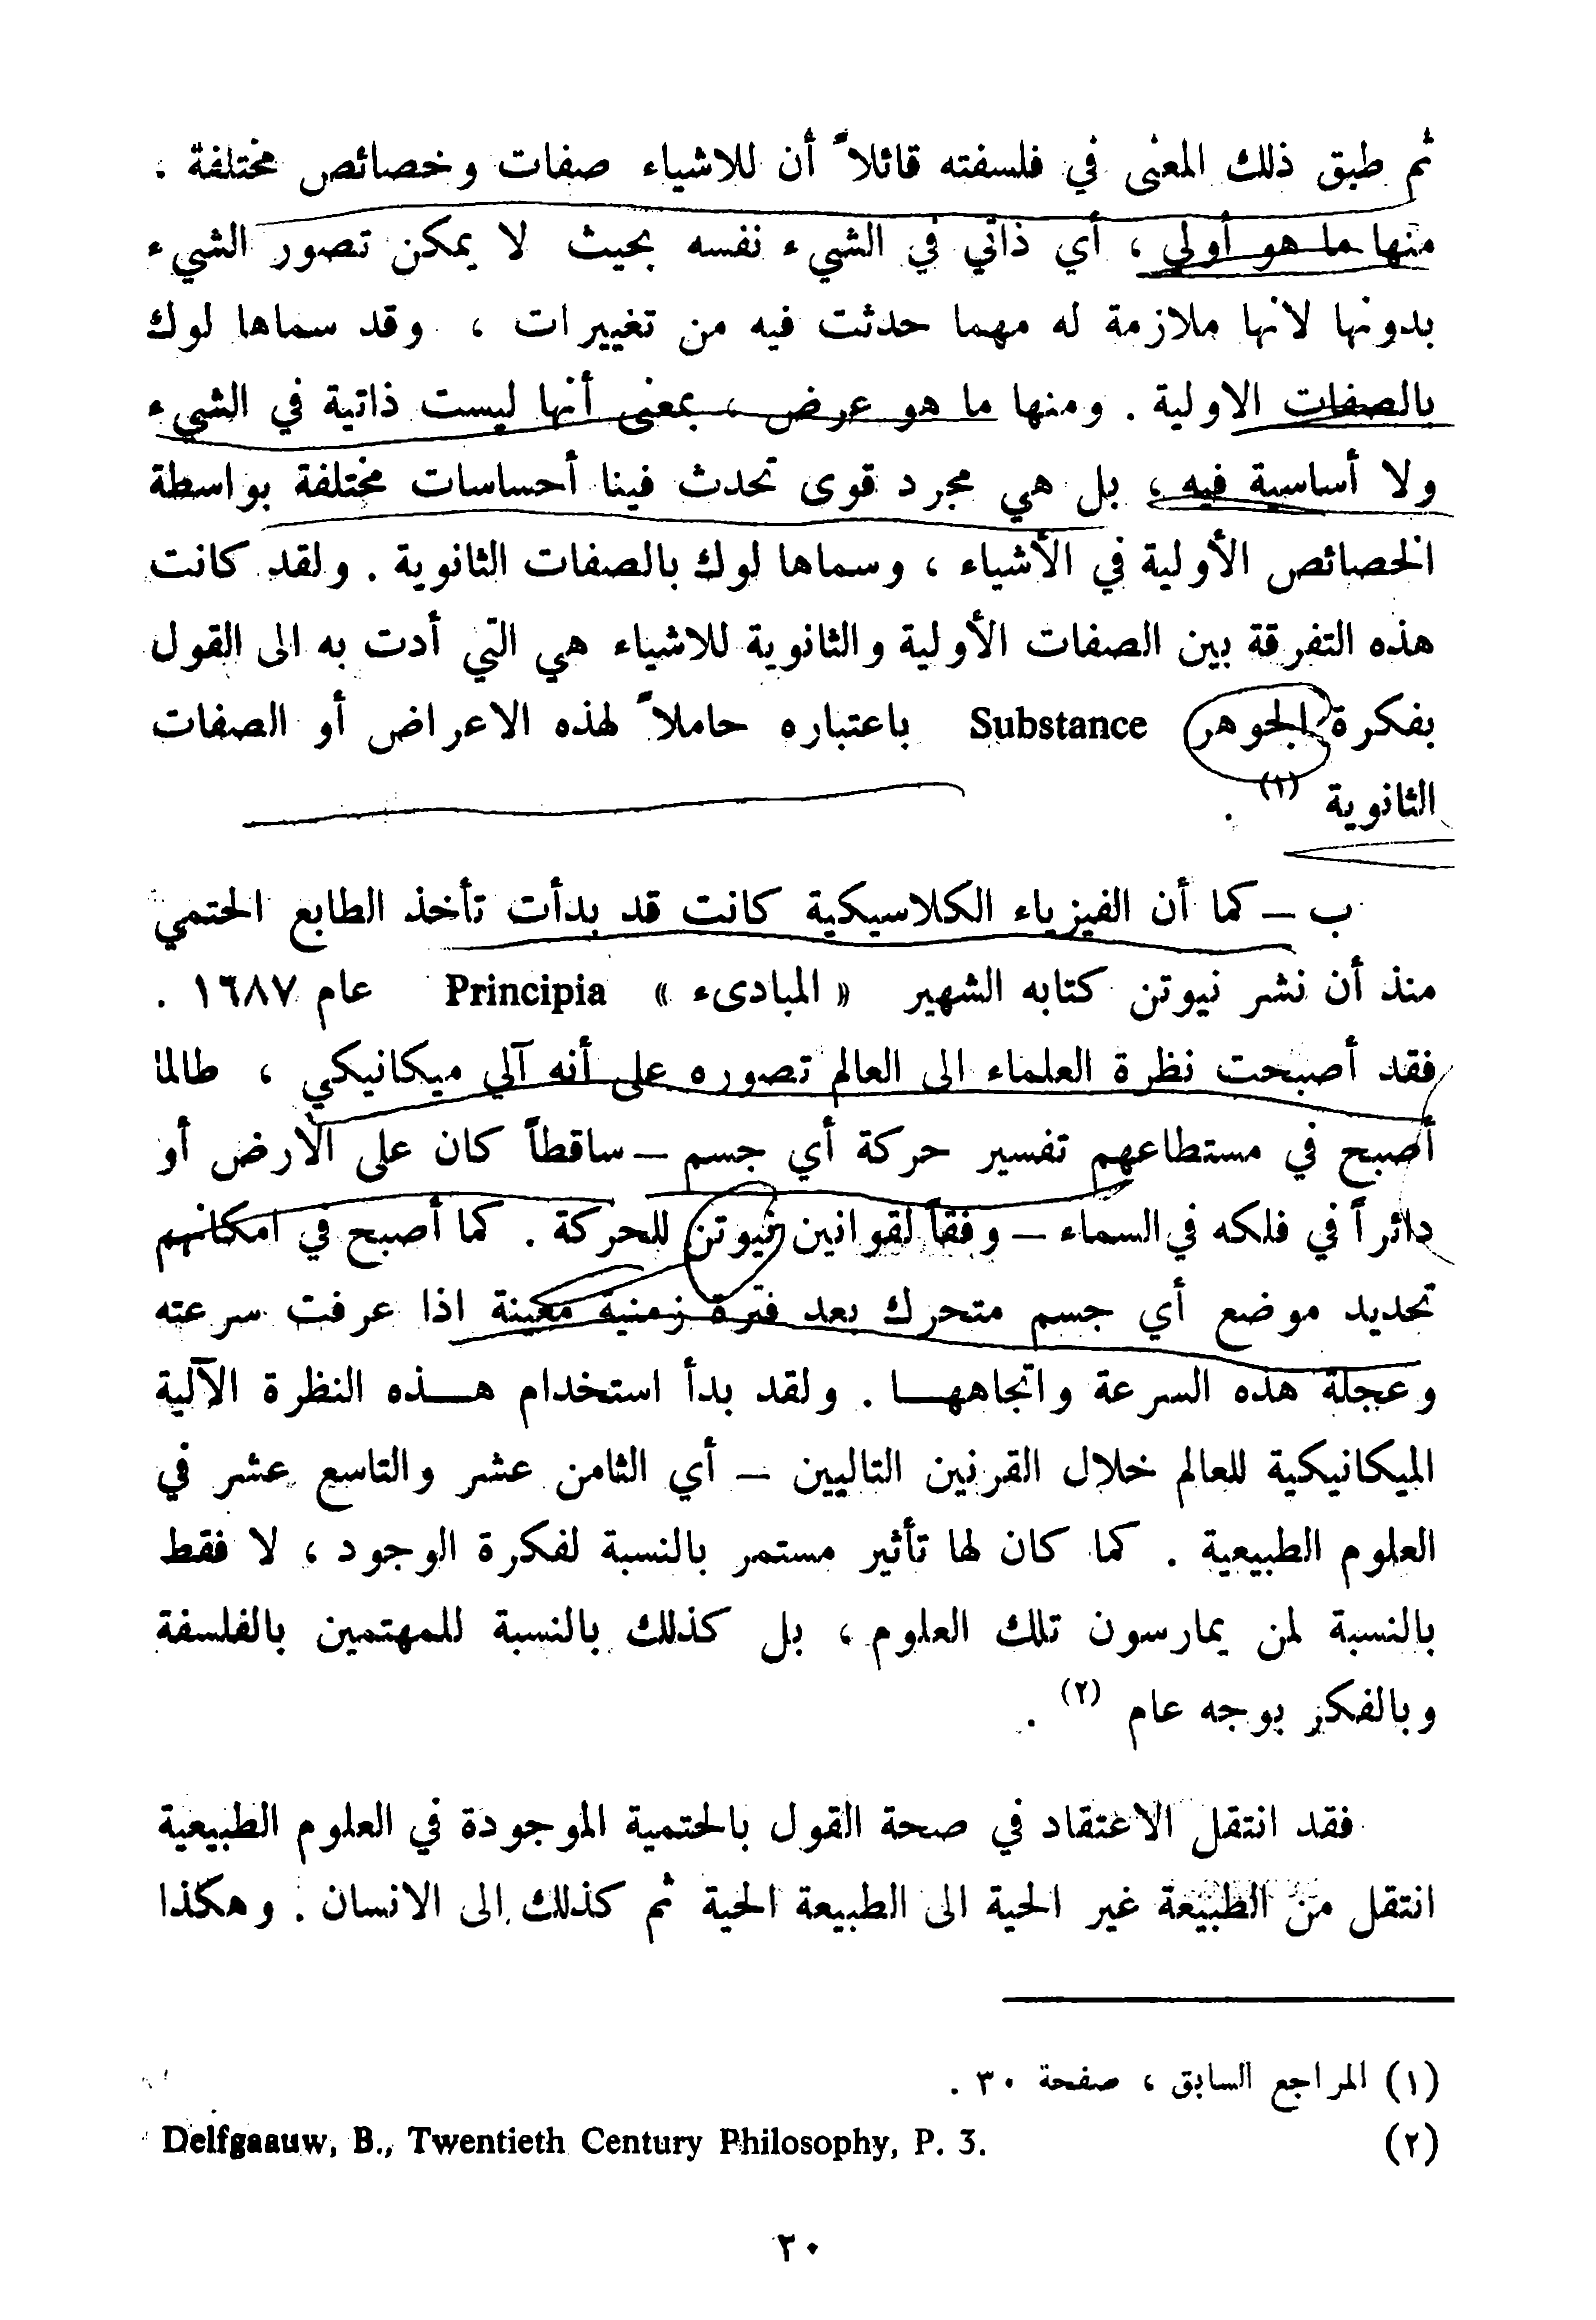 ثم طبق ذلك المعنى في فلسفته قائلاً أن للاشياء صفات وخصائص مختلفة .
منها ما هو أولي ، أي ذاتي في الشيء نفسه بحيث لا يمكن تصور الشيء
بدونها لانها ملازمة له مهما حدثت فيه من تغييرات ، وقد سماها لوك
بالصفات الاولية . ومنها ما هو عرض ، بمعنى أنها ليست ذاتية في الشيء
ولا أساسية فيه ، بل هي مجرد قوى تحدث فينا أحساسات مختلفة بواسطة
الخصائص الأولية في الأشياء ، وسماها لوك بالصفات الثانوية . ولقد كانت
هذه التفرقة بين الصفات الأولية والثانوية للاشياء هي التي أدت به الى القول
بفكرة الجوهر Substance باعتباره حاملاً لهذه الاعراض أو الصفات
الثانوية (١) .
ب – كما أن الفيزياء الكلاسيكية كانت قد بدأت تأخذ الطابع الحتمي
منذ أن نشر نيوتن كتابه الشهير « المبادىء » Principia عام ١٦٨٧ .
فقد أصبحت نظرة العلماء الى العالم تصوره على أنه آلي ميكانيكي ، طالما
أصبح في مستطاعهم تفسير حركة أي جسم – ساقطاً كان على الارض أو
دائراً في فلكه في السماء – وفقاً لقوانين نيوتن للحركة . كما أصبح في امكانهم
تحديد موضع أي جسم متحرك بعد فترة زمنية معينة اذا عرفت سرعته
وعجلة هذه السرعة واتجاهها . ولقد بدأ استخدام هذه النظرة الآلية
الميكانيكية للعالم خلال القرنين التاليين – أي الثامن عشر والتاسع عشر في
العلوم الطبيعية . كما كان لها تأثير مستمر بالنسبة لفكرة الوجود ، لا فقط
بالنسبة لمن يمارسون تلك العلوم ، بل كذلك بالنسبة للمهتمين بالفلسفة
وبالفكر بوجه عام (٢) .
فقد انتقل الاعتقاد في صحة القول بالحتمية الموجودة في العلوم الطبيعية
انتقل من الطبيعة غير الحية الى الطبيعة الحية ثم كذلك الى الانسان . وهكذا
(١) المراجع السابق ، صفحة ٣٠ .
(٢) Delfgaauw, B., Twentieth Century Philosophy, P. 3.
٢٠